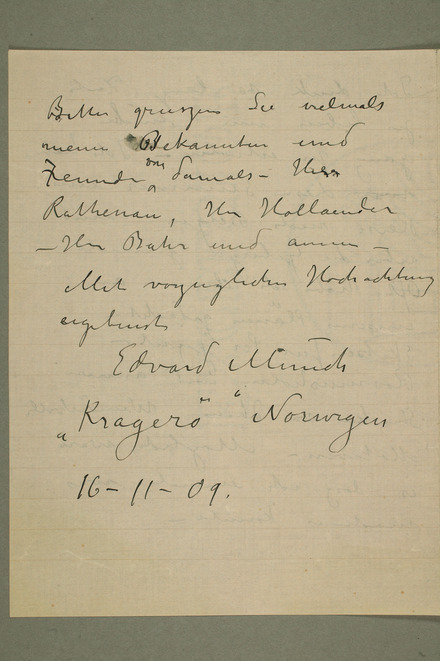 Bitte grüszen Sie vielmals
meine Bekannten und
Freunde von damals – Herr
Rathenau, Herr Hollaender
– Herr Bahr und
Mit vorzüglicher Hochachtung
ergebenst
Edvard Munch
„Kragerö“ Norwegen
16–11–09.